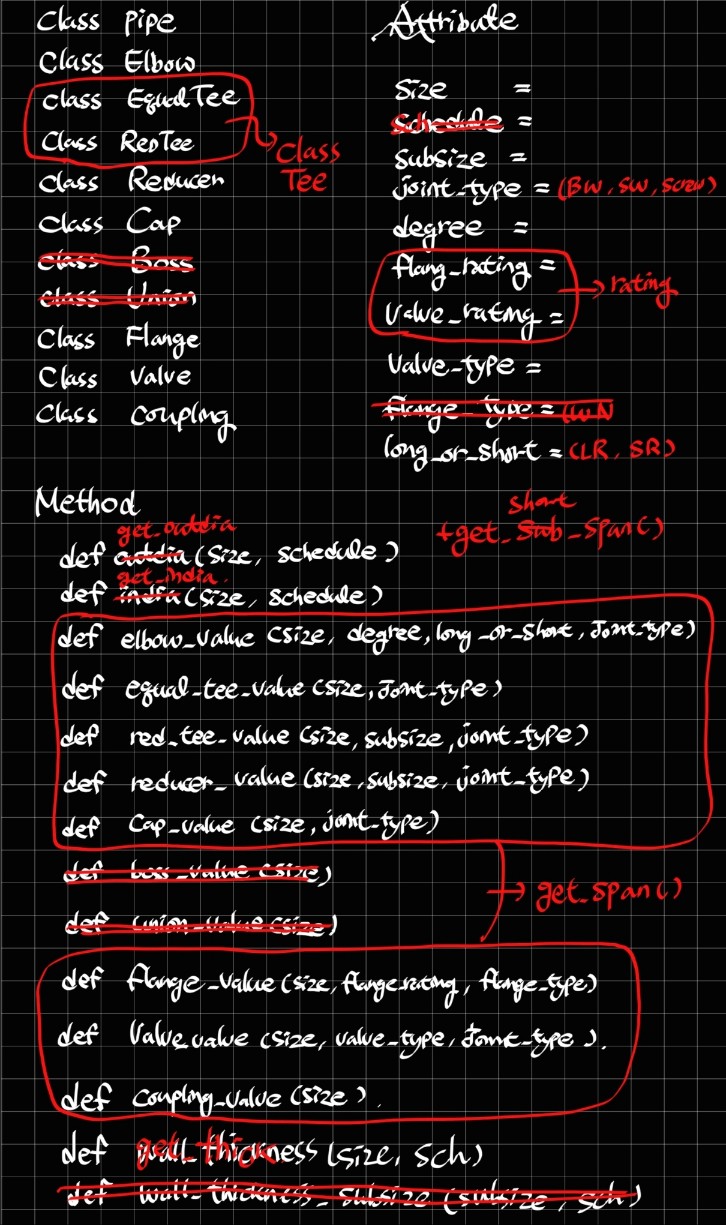 Class Pipe
Class Elbow
Class EqualTee
Class RedTee
Class Tee
Class Reducer
Class Cap
class Boss
class Union
Class Flange
Class Valve
Class Coupling
Attribute
Size =
Schedule =
Subsize =
joint_type = (BW, SW, screw)
degree =
flang_rating =
Valve_rating =
rating
Valve-type =
flange_type = (WN
long_or_short = (LR, SR)
Method
get_outdia
def outdia (Size, Schedule)
get_india.
def india (Size, Schedule)
short
+get_sub_span()
def elbow_value (size, degree, long_or_short, Joint-type)
def equal-tee-value (size, Joint-type)
def red_tee-value (size, subsize, joint-type)
def reducer_value (size, subsize, joint-type)
def Cap_value (size, joint-type)
def boss_value (size)
get_span()
def union_value (size)
def flange_value (size, flange rating, flange_type)
def Valve value (size, valve-type, Joint-type).
def Coupling_value (size).
get_thick
def wall_thickness (size, Sch)
def wall_thickness_subsize (subsize, sch)